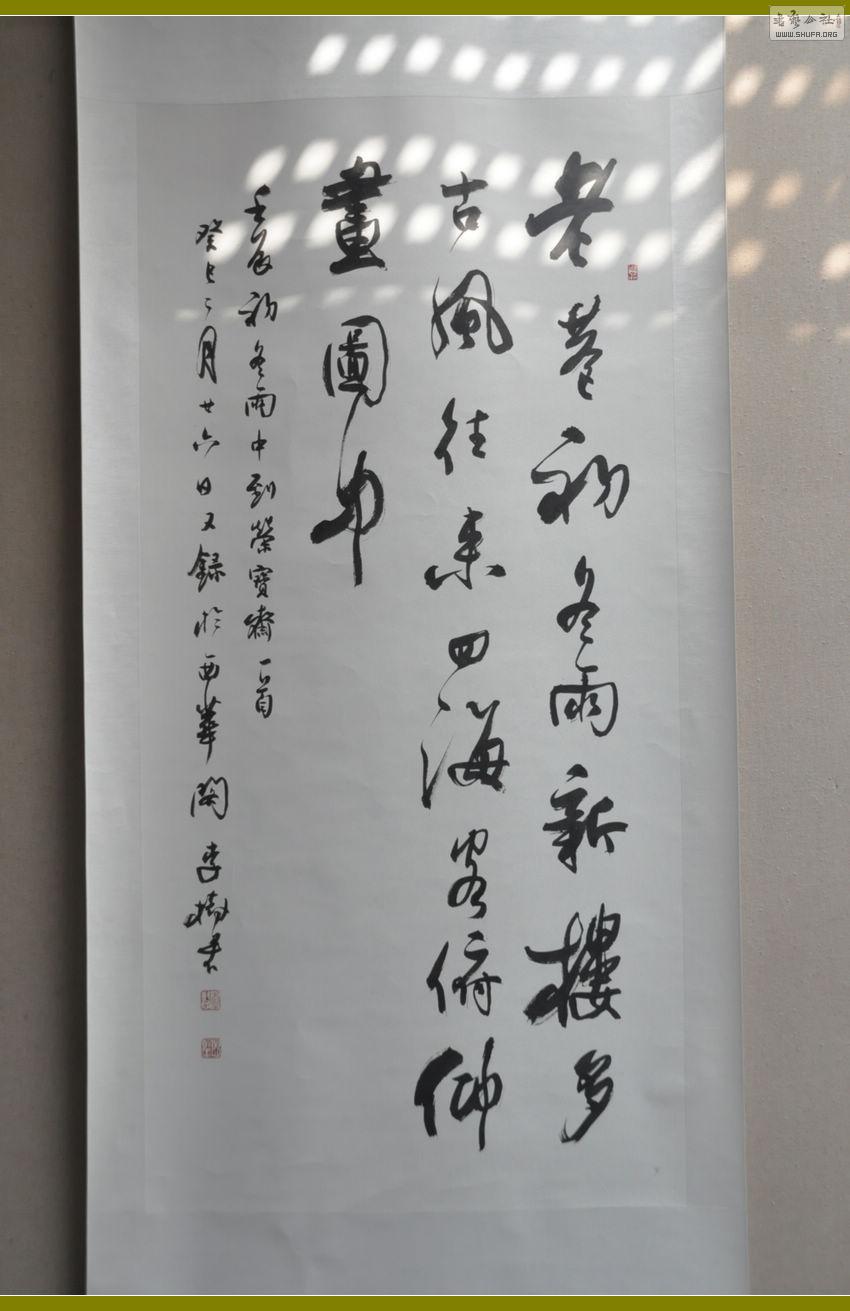 老巷初冬雨新樓多
古風往來四海客俯仰
畫圖中
壬辰初冬雨中到榮寶齋一首
癸巳二月廿六日又錄於西華門 李樹
WWW.SHUFA.ORG